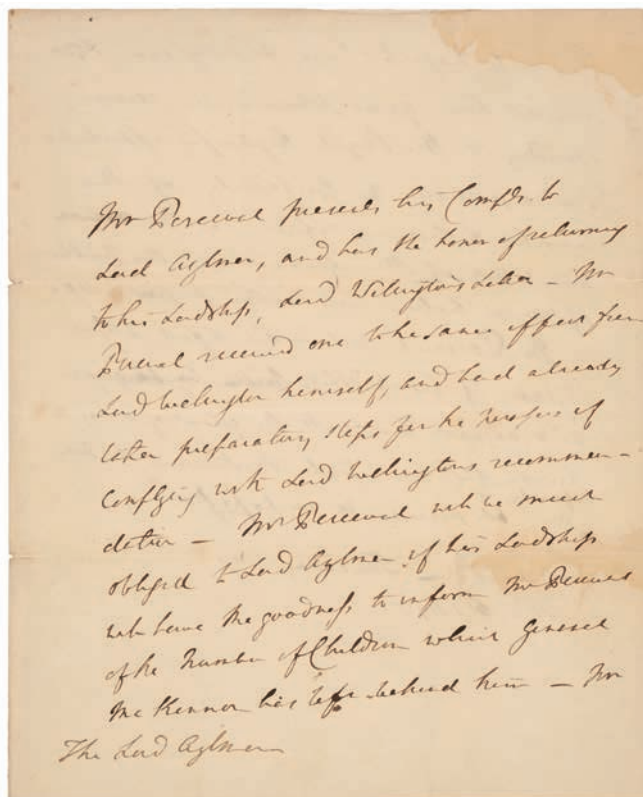 Mr Perceval presents his Complts. to
Lord Aylmer, and has the honor of returning
to his Lordship, Lord Wellington's Letter – Mr
Perceval received one to the same effect from
Lord Wellington himself, and had already
taken preparatory steps for the purpose of
complying with Lord Wellingtons recommen–
dation – Mr Perceval will be much
obliged to Lord Aylmer if his Lordship
will have the goodness to inform Mr Perceval
of the Number of Children which General
McKinnon has left behind him – Mr
The Lord Aylmer